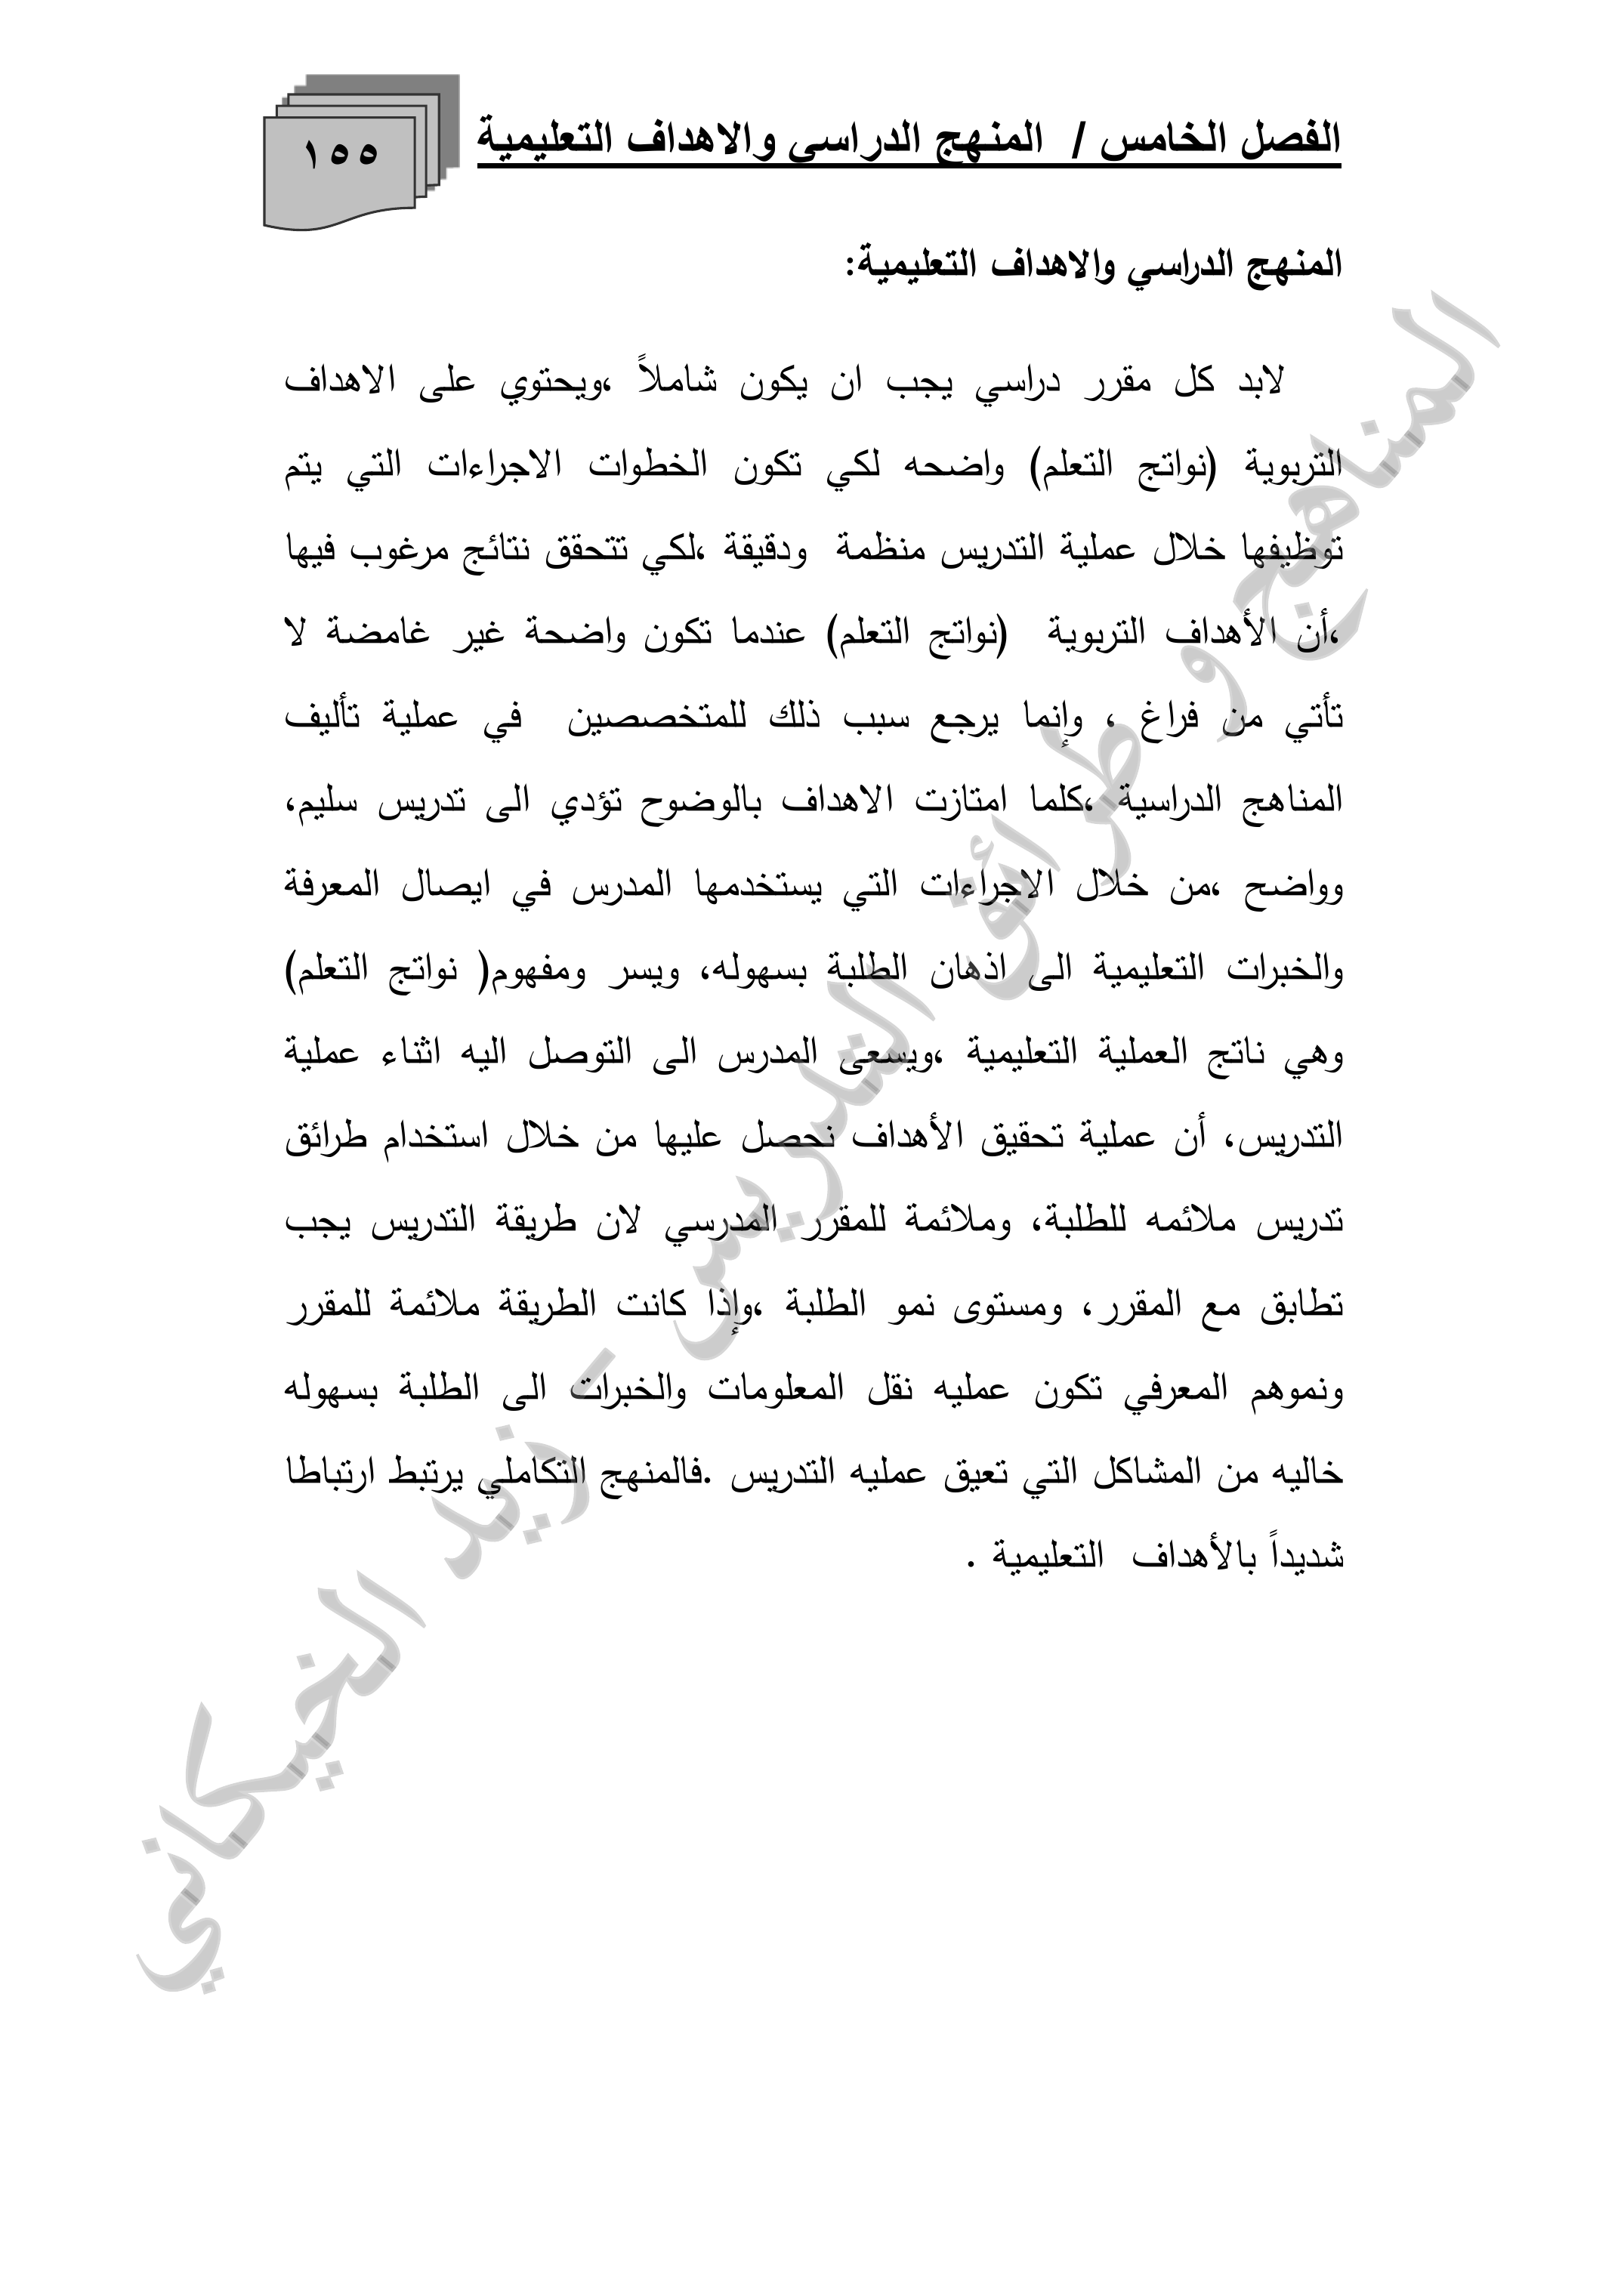 الفصل الخامس / المنهج الدراسي والاهداف التعليمية
١٥٥
المنهج الدراسي والاهداف التعليمية:
لابد كل مقرر دراسي يجب ان يكون شاملاً ،ويحتوي على الاهداف
التربوية (نواتج التعلم) واضحه لكي تكون الخطوات الاجراءات التي يتم
توظيفها خلال عملية التدريس منظمة ودقيقة ،لكي تتحقق نتائج مرغوب فيها
،أن الأهداف التربوية (نواتج التعلم) عندما تكون واضحة غير غامضة لا
تأتي من فراغ ، وإنما يرجع سبب ذلك للمتخصصين في عملية تأليف
المناهج الدراسية ،كلما امتازت الاهداف بالوضوح تؤدي الى تدريس سليم،
وواضح ،من خلال الاجراءات التي يستخدمها المدرس في ايصال المعرفة
والخبرات التعليمية الى اذهان الطلبة بسهوله، ويسر ومفهوم( نواتج التعلم)
وهي ناتج العملية التعليمية ،ويسعى المدرس الى التوصل اليه اثناء عملية
التدريس، أن عملية تحقيق الأهداف نحصل عليها من خلال استخدام طرائق
تدريس ملائمه للطلبة، وملائمة للمقرر المدرسي لان طريقة التدريس يجب
تطابق مع المقرر، ومستوى نمو الطلبة ،وإذا كانت الطريقة ملائمة للمقرر
ونموهم المعرفي تكون عمليه نقل المعلومات والخبرات الى الطلبة بسهوله
خاليه من المشاكل التي تعيق عمليه التدريس .فالمنهج التكاملي يرتبط ارتباطا
شديداً بالأهداف التعليمية .
المناهج و طرائق التدريس - زيد الخيكاني